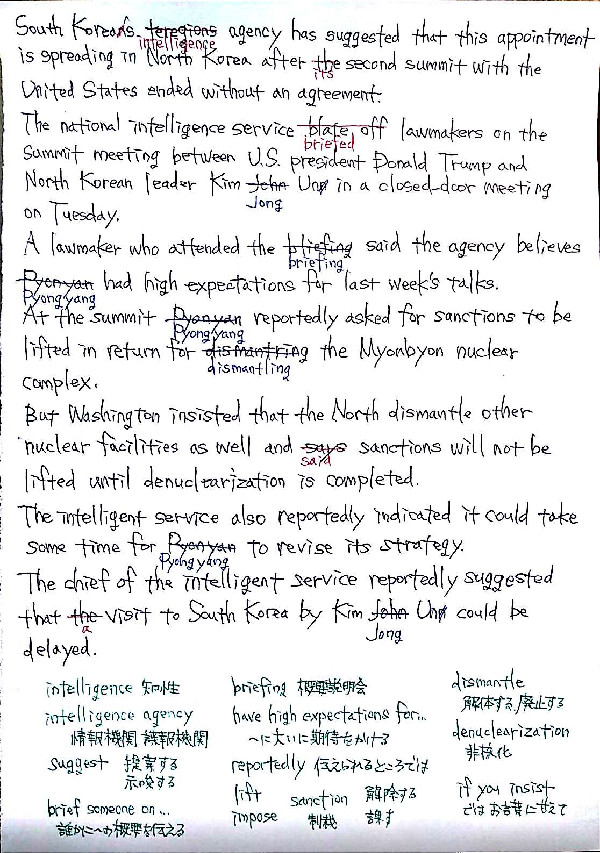 South Korea's teregions agency has suggested that this appointment
intelligence
is spreading in North Korea after the second summit with the
its
United States ended without an agreement.
The national intelligence service blate off lawmakers on the
briefed
Summit meeting between U.S. president Donald Trump and
North Korean leader Kim John Un in a closed-door meeting
Jong
on Tuesday.
A lawmaker who attended the bliefing said the agency believes
briefing
Pyonyan had high expectations for last week's talks.
Pyongyang
At the summit Pyonyan reportedly asked for sanctions to be
Pyongyang
lifted in return for dismantring the Myonbyon nuclear
dismantling
complex.
But Washington insisted that the North dismantle other
nuclear facilities as well and says sanctions will not be
said
lifted until denuclearization is completed.
The intelligent service also reportedly indicated it could take
some time for Pyonyan to revise its strategy.
Pyongyang
The chief of the intelligent service reportedly suggested
that the visit to South Korea by Kim John Un could be
a
Jong
delayed.
intelligence 知性
intelligence agency
情報機関 諜報機関
suggest 提案する
示唆する
brief someone on...
誰かにへの概要を伝える
briefing 概要説明会
have high expectations for...
〜に大いに期待をかける
reportedly 伝えられるところでは
lift sanction 解除する
impose 制裁 課す
dismantle
解体する/廃止する
denuclearization
非核化
if you insist
ではお言葉に甘えて